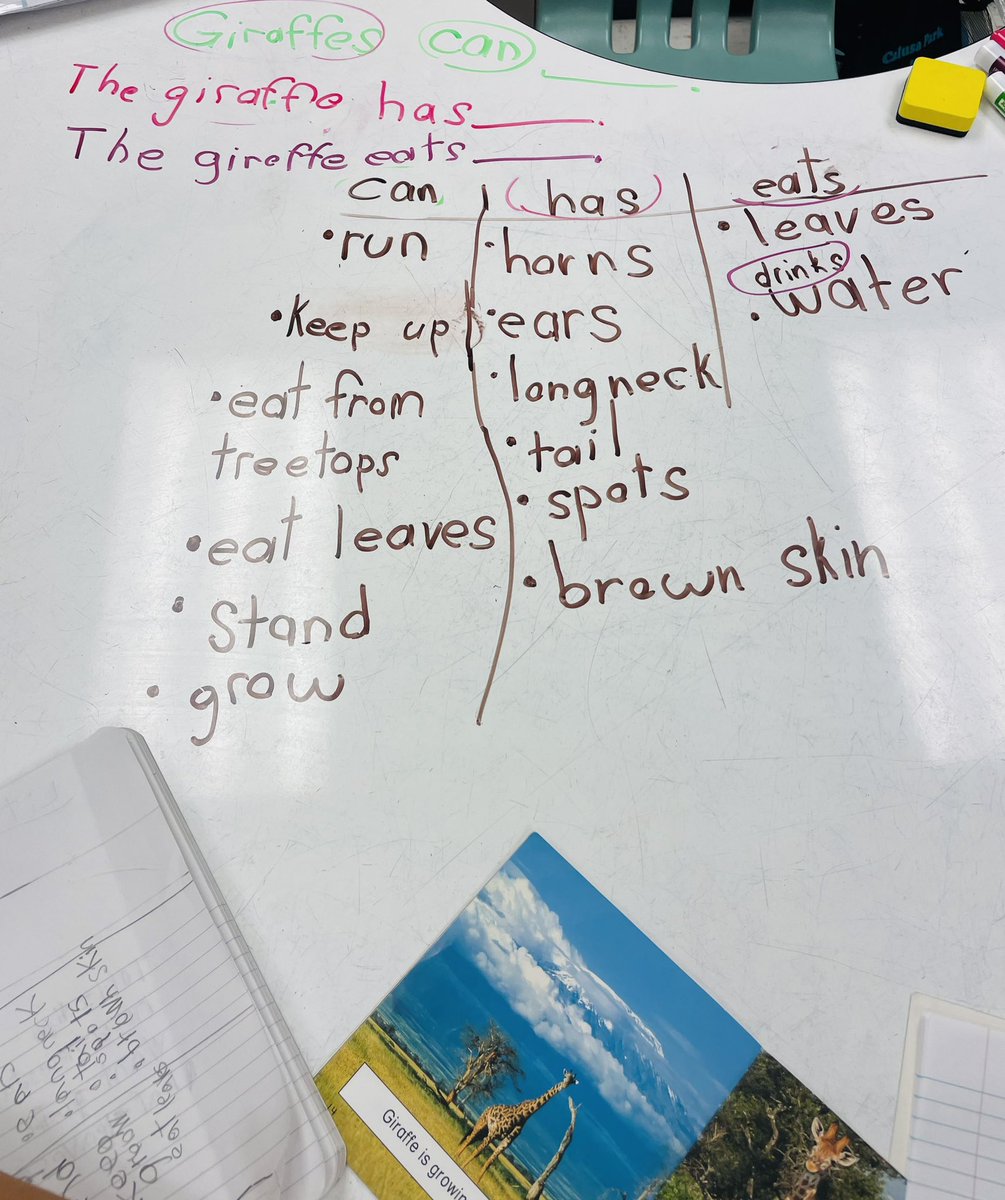 Giraffes can ___.
The giraffe has ___.
The giraffe eats ___.
can | has | eats
• run
• Keep up
• eat from
treetops
• eat leaves
• Stand
• grow
• horns
• ears
• long neck
• tail
• spots
• brown skin
• leaves
drinks
• water
Calusa Park
• ears
• long neck
• tail
• spots
• brown skin
Keep
grow
eat leaves
14
Giraffe is growing